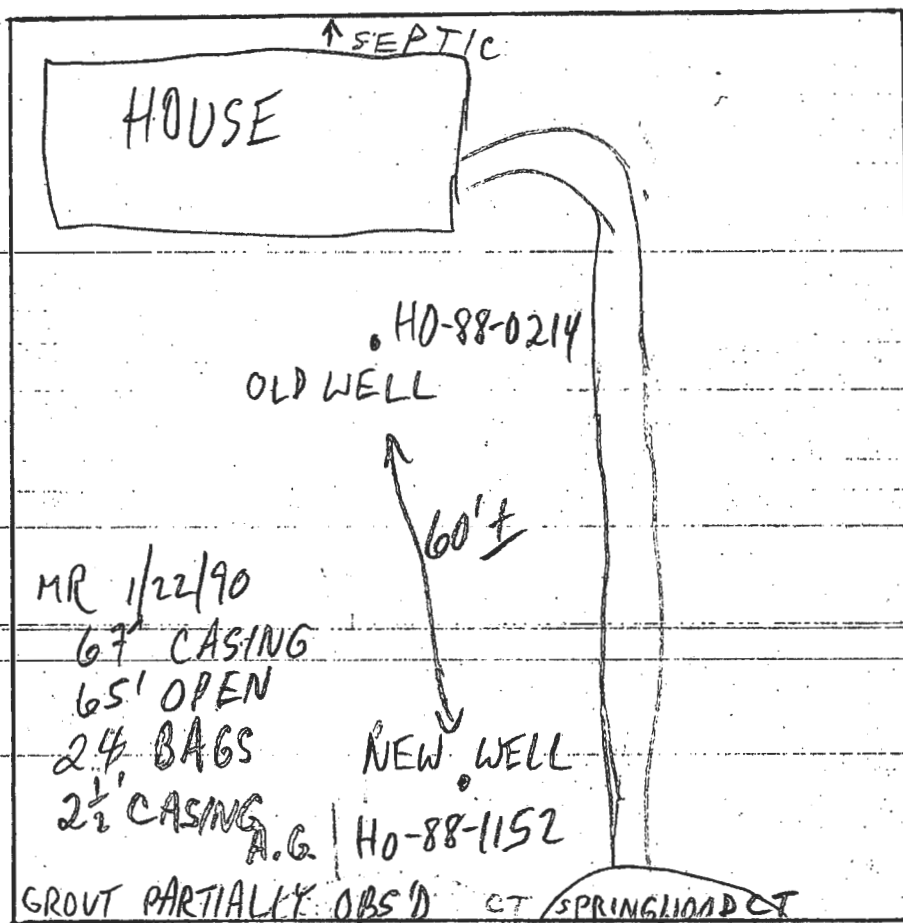 ↑ SEPTIC
HOUSE
HO-88-0214
OLD WELL
60' ±
MR 1/22/90
67' CASING
65' OPEN
24 BAGS
2½' CASING
A.G.
NEW WELL
HO-88-1152
GROUT PARTIALLY OBS'D
CT
CT